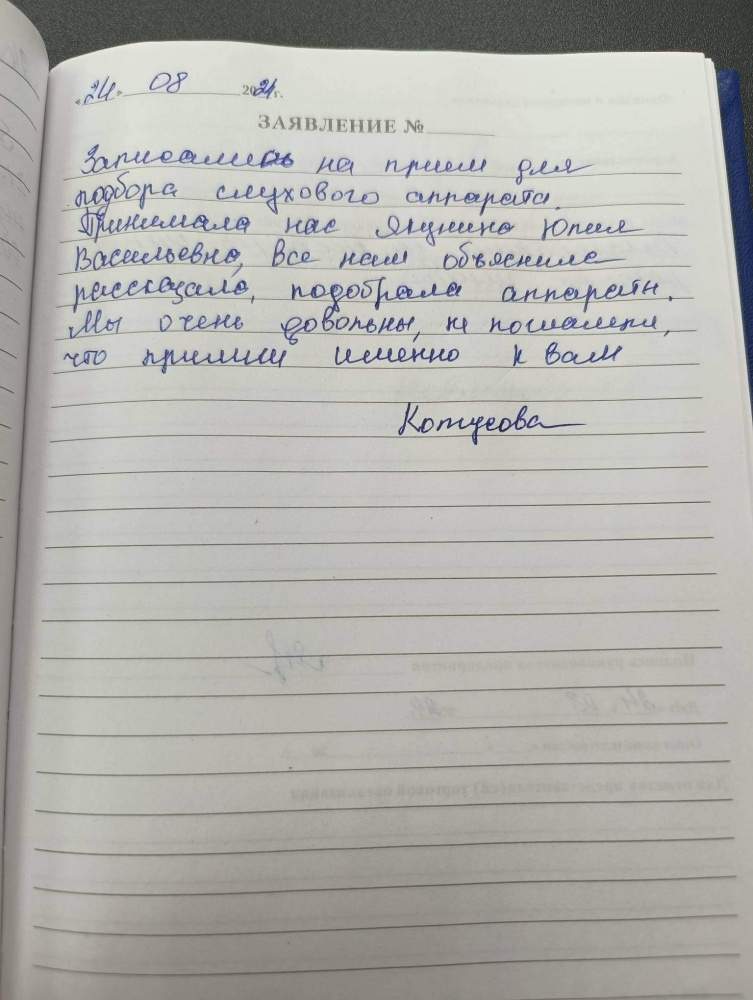 «24» 08 2024 г.
ЗАЯВЛЕНИЕ №
Записались на прием для
подбора слухового аппарата.
Принимала нас Якунина Юлия
Васильевна, все нам объяснила
рассказала, подобрала аппараты.
Мы очень довольны, не пожалели,
что пришли именно к вам